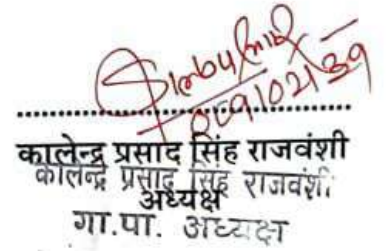 कालेन्द्र प्रसाद सिंह राजवंशी
कालेन्द्र प्रसाद सिंह राजवंशी
अध्यक्ष
गा.पा. अध्यक्ष